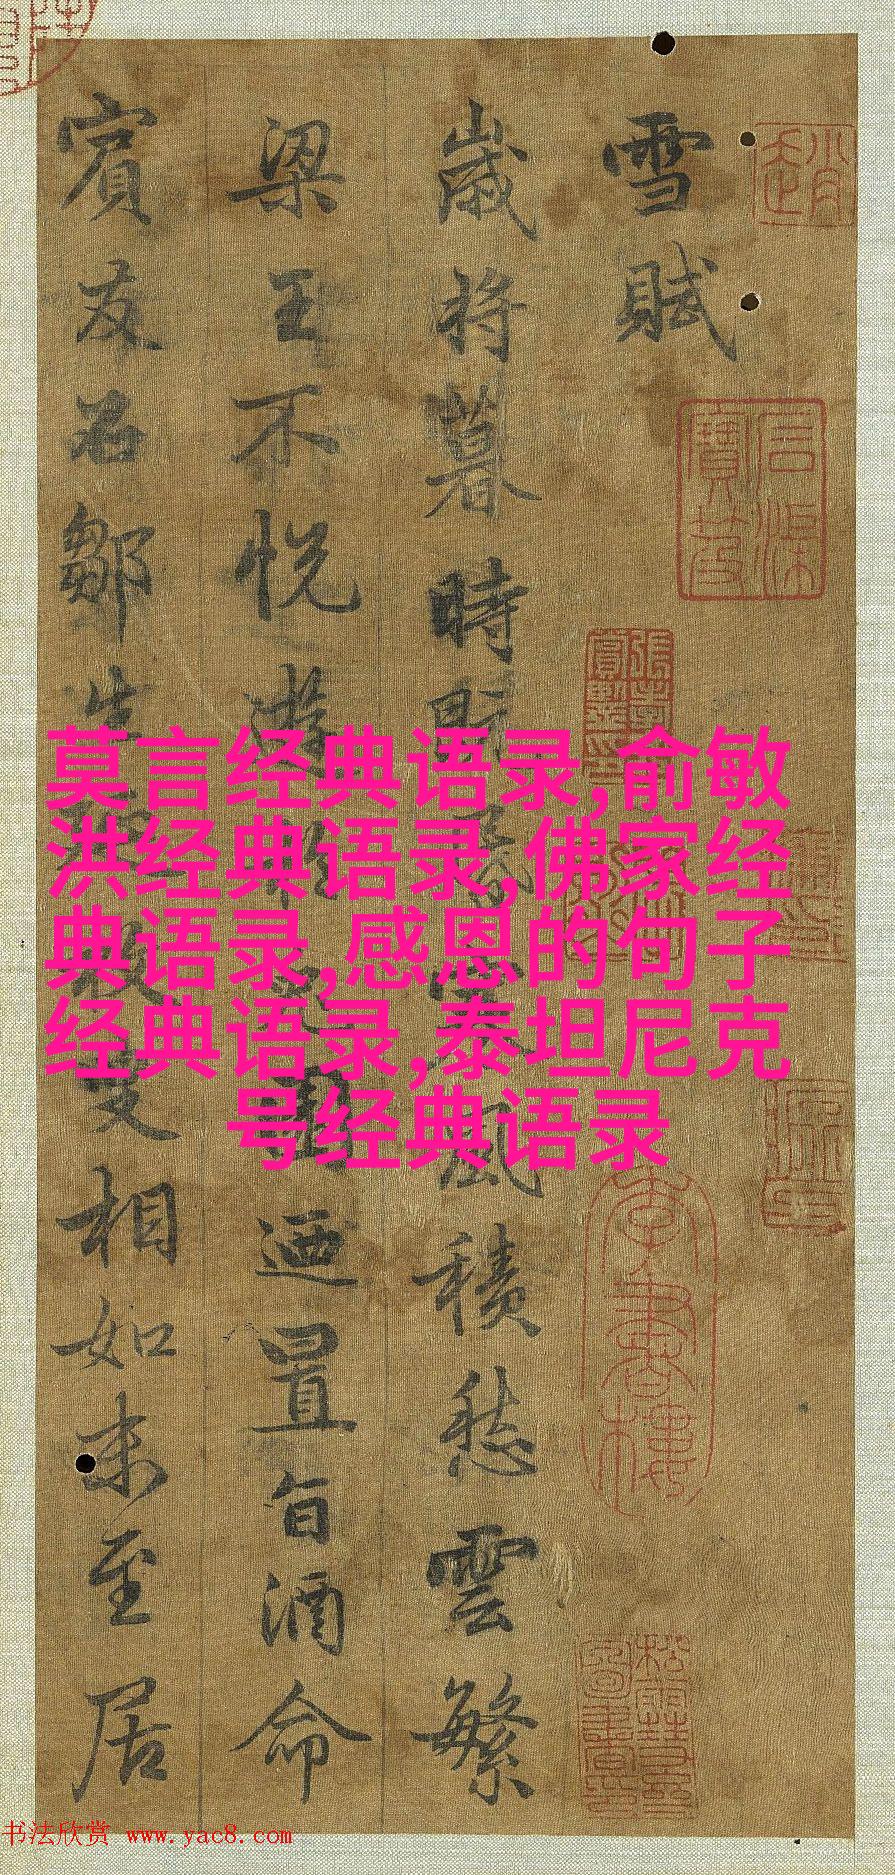 雪賦
歲将暮時既寒風積愁雲繁
梁王不悅遊於園迺置旨酒命
賓友召鄒生枚叟相如末至居
莫言经典语录,俞敏
洪经典语录,佛家经
典语录,感恩的句子
经典语录,泰坦尼克
号经典语录
书法欣赏 www.yac8.com